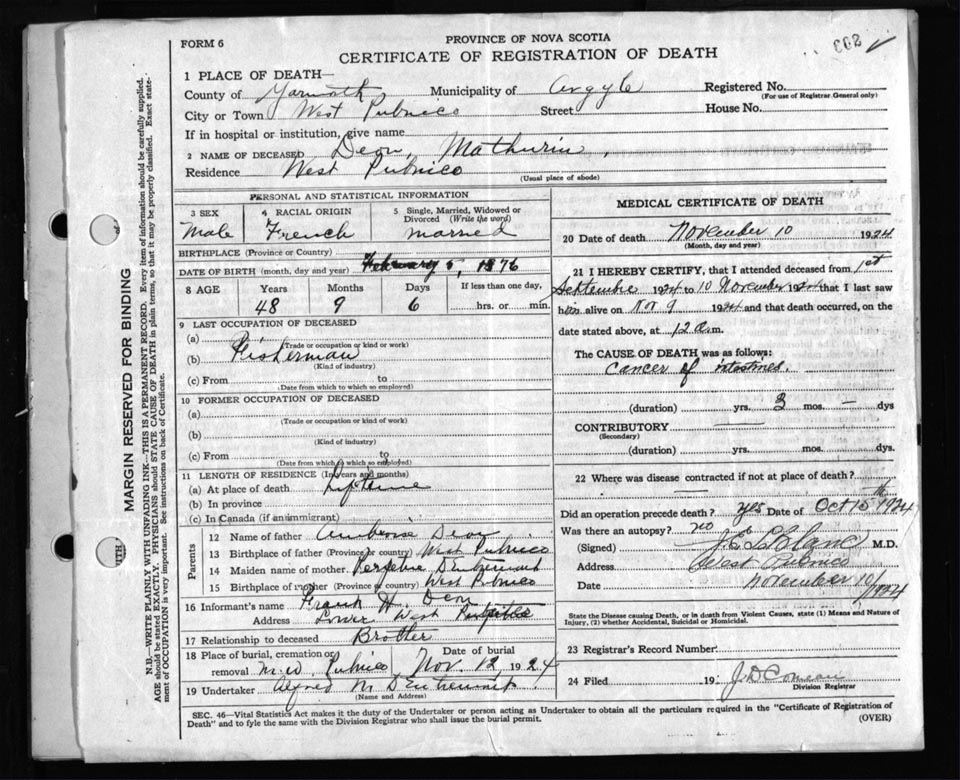 PROVINCE OF NOVA SCOTIA
FORM 6
CERTIFICATE OF REGISTRATION OF DEATH
1 PLACE OF DEATH—
County of Yarmouth Municipality of Argyle Registered No.
(For use of Registrar General only)
City or Town West Pubnico Street House No.
If in hospital or institution, give name
2 NAME OF DECEASED Deon, Mathurin,
Residence West Pubnico
(Usual place of abode)
PERSONAL AND STATISTICAL INFORMATION
3 SEX 4 RACIAL ORIGIN 5 Single, Married, Widowed or
Divorced (Write the word)
Male French married
BIRTHPLACE (Province or Country)
DATE OF BIRTH (month, day and year) February 5, 1876
8 AGE Years Months Days If less than one day,
48 9 6 hrs. or min.
9 LAST OCCUPATION OF DECEASED
(a)
(Trade or occupation or kind or work)
(b) Fisherman
(Kind of industry)
(c) From to
(Date from which to which so employed)
10 FORMER OCCUPATION OF DECEASED
(a)
(Trade or occupation or kind of work)
(b)
(Kind of industry)
(c) From to
(Date from which to which so employed)
11 LENGTH OF RESIDENCE (In years and months)
(a) At place of death Lifetime
(b) In province
(c) In Canada (if an immigrant)
Parents
12 Name of father Ambroise Deon
13 Birthplace of father (Province or country) West Pubnico
14 Maiden name of mother. D'Entremont
15 Birthplace of mother (Province or country) West Pubnico
16 Informant's name Frank H. Deon
Address Lower West Pubnico
17 Relationship to deceased Brother
18 Place of burial, cremation or Date of burial
removal M.W. Pubnico Nov. 12, 1924
19 Undertaker Alfred M D'Entremont
(Name and Address)
MEDICAL CERTIFICATE OF DEATH
20 Date of death November 10 1924
(Month, day and year)
21 I HEREBY CERTIFY, that I attended deceased from 1st
Septembre 1924 to 10 November 1924 that I last saw
him alive on Nov 9 1924 and that death occurred, on the
date stated above, at 12 a.m.
The CAUSE OF DEATH was as follows:
Cancer of intestines.
(duration) yrs. 3 mos. — dys
CONTRIBUTORY —
(Secondary)
(duration) yrs. mos. dys.
22 Where was disease contracted if not at place of death?
—
Did an operation precede death? yes Date of Oct 15th 1924
Was there an autopsy? no
(Signed) J.E. LeBlanc M.D.
Address West Pubnico
Date November 10/1924
State the Disease causing Death, or in death from Violent Causes, state (1) Means and Nature of
Injury, (2) whether Accidental, Suicidal or Homicidal.
23 Registrar's Record Number
24 Filed 19 J.D Comeau
Division Registrar
SEC. 46—Vital Statistics Act makes it the duty of the Undertaker or person acting as Undertaker to obtain all the particulars required in the "Certificate of Registration of
Death" and to fyle the same with the Division Registrar who shall issue the burial permit.
(OVER)
MARGIN RESERVED FOR BINDING
N.B.—WRITE PLAINLY WITH UNFADING INK—THIS IS A PERMANENT RECORD. Every item of information should be carefully supplied.
AGE should be stated EXACTLY. PHYSICIANS should STATE CAUSE OF DEATH in plain terms, so that it may be properly classified. Exact state-
ment of OCCUPATION is very important. See instructions on back of Certificate.